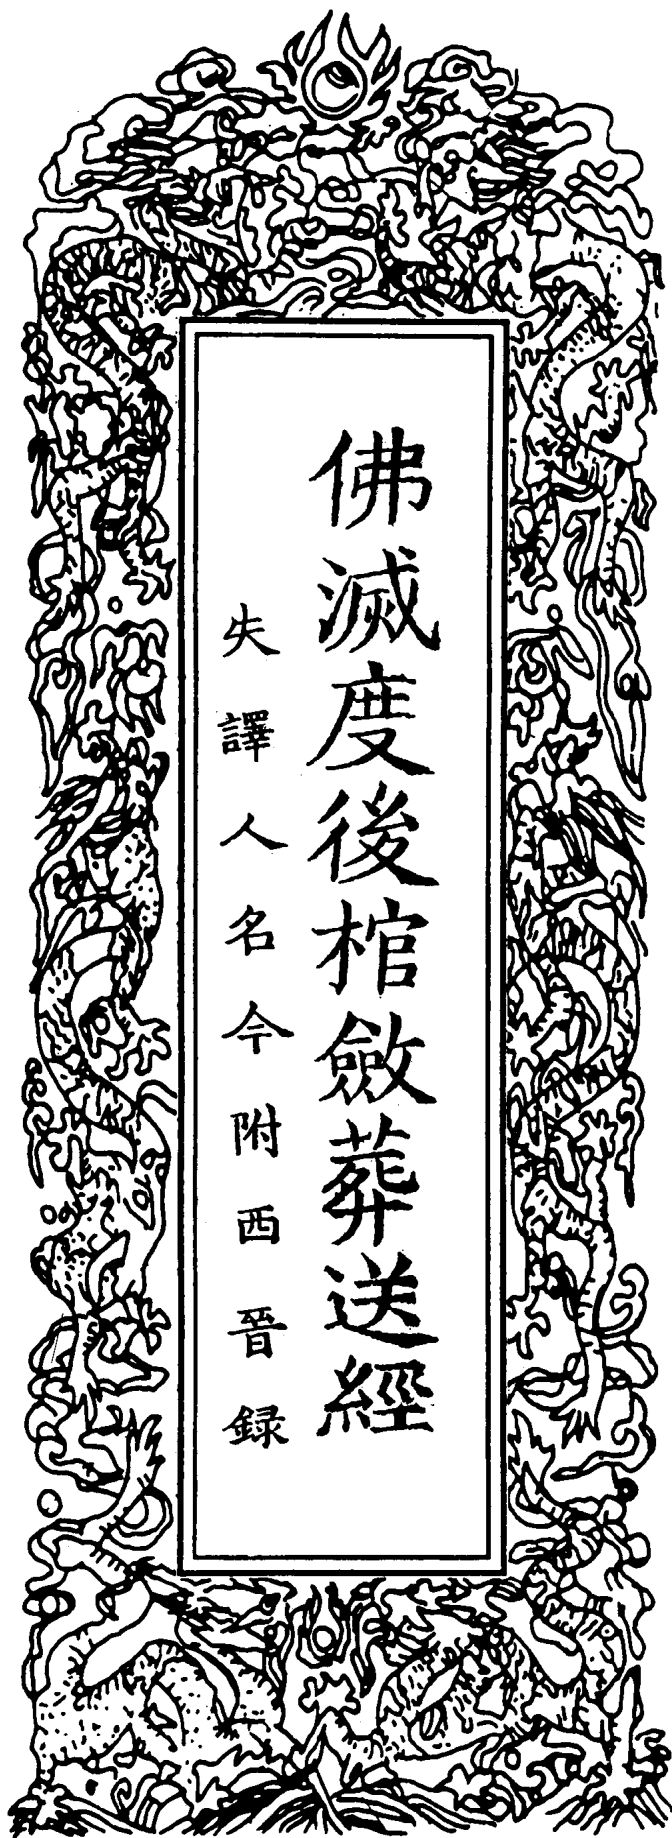 佛滅度後棺斂葬送經
失譯人名今附西晉録